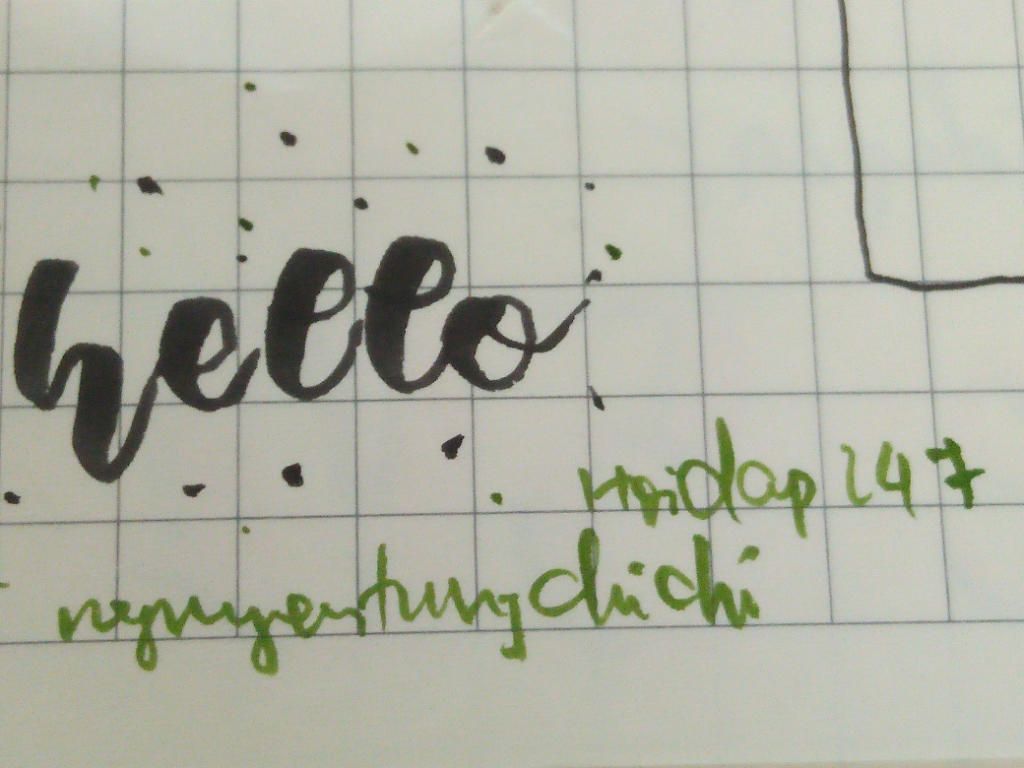 hello
Hoidap 247
nguyentungchichi